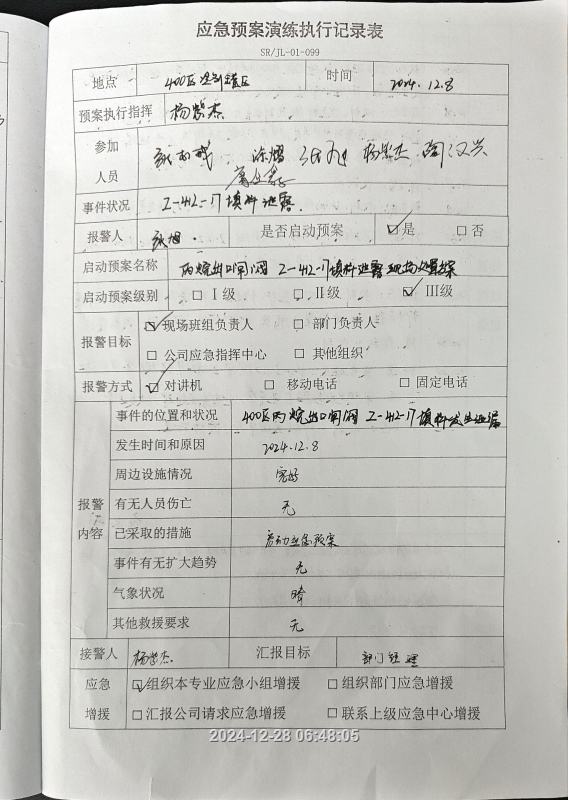 应急预案演练执行记录表
SR/JL-01-099
地点 400区 罐区 时间 2024.12.8
预案执行指挥 杨
参加人员 涂 杨 陶汉兴
事件状况 Z-412-17填料泄露.
报警人 张旭. 是否启动预案 ☑是 □否
启动预案名称 丙烷出口闸阀 Z-412-17填料泄露现场处置
启动预案级别 □Ⅰ级 □Ⅱ级 ☑Ⅲ级
报警目标 ☑现场班组负责人 □部门负责人
□公司应急指挥中心 □其他组织
报警方式 ☑对讲机 □移动电话 □固定电话
报警内容
事件的位置和状况 400区丙烷出口闸阀 Z-412-17填料发生泄漏
发生时间和原因 2024.12.8
周边设施情况 完好
有无人员伤亡 无
已采取的措施 启动应急预案
事件有无扩大趋势 无
气象状况 晴
其他救援要求 无
接警人 杨 汇报目标 部门经理
应急增援 ☑组织本专业应急小组增援 □组织部门应急增援
□汇报公司请求应急增援 □联系上级应急中心增援
2024-12-28 06:48:05